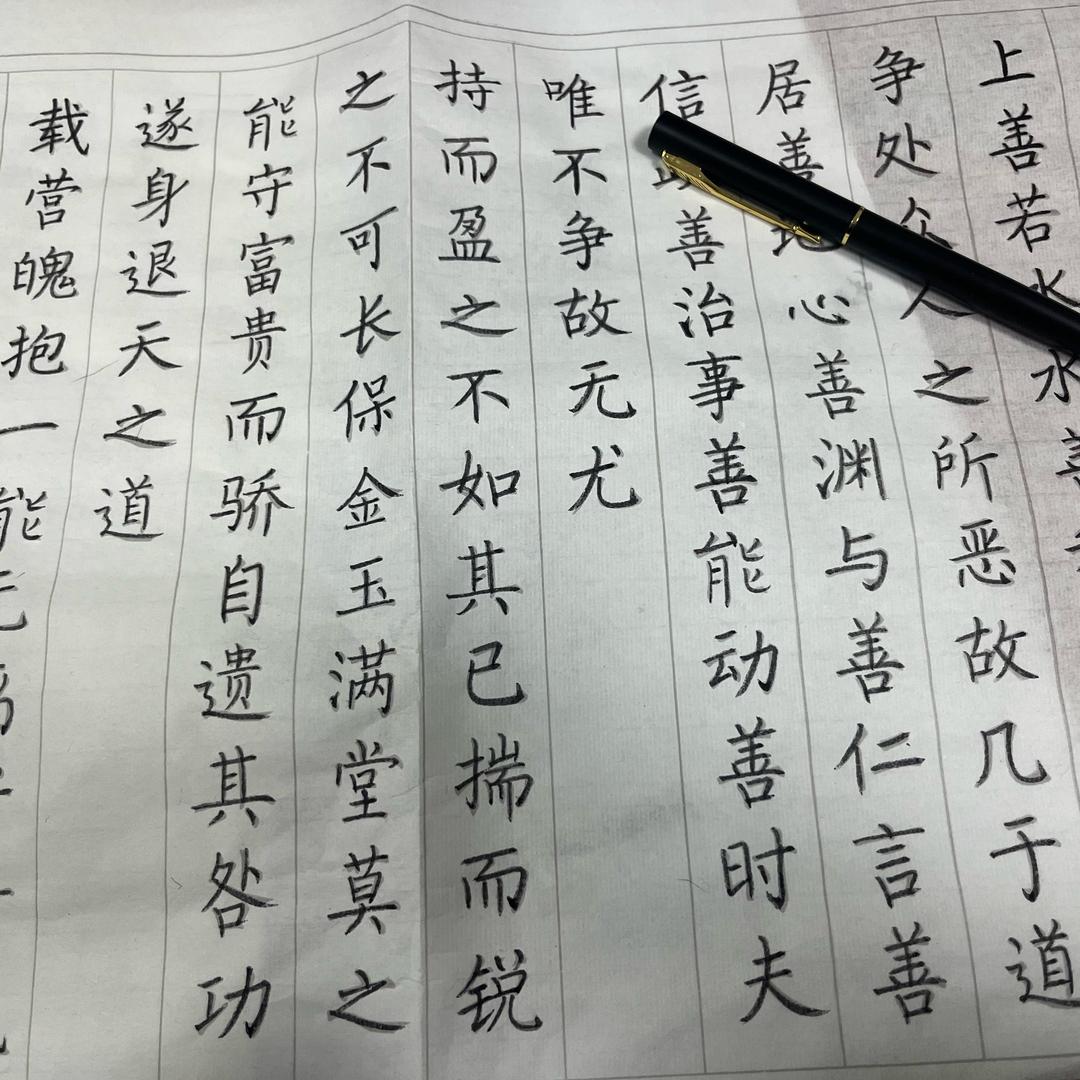 上善若水水善
争处众人之所恶故几于道
居善地心善渊与善仁言善
信善治事善能动善时夫
唯不争故无尤
持而盈之不如其已揣而锐
之不可长保金玉满堂莫之
能守富贵而骄自遗其咎功
遂身退天之道
载营魄抱一能无